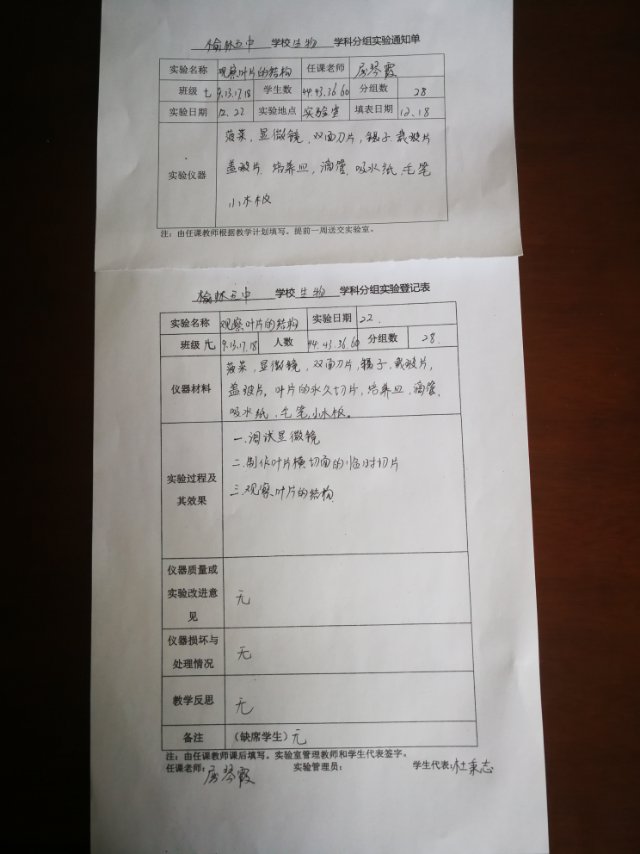 榆林五中 学校 生物 学科分组实验通知单
实验名称 观察叶片的结构 任课老师
班级 七 9.13.17.18 学生数 44.43.36.60 分组数 28
实验日期 12.22 实验地点 实验室 填表日期 12.18
实验仪器 菠菜，显微镜，双面刀片，镊子，载玻片
盖玻片，培养皿，滴管，吸水纸，毛笔
小木板
注：由任课教师根据教学计划填写。提前一周送交实验室。
榆林五中 学校 生物 学科分组实验登记表
实验名称 观察叶片的结构 实验日期 22.
班级 七 9.13.17.18 人数 44.43.36.60 分组数 28.
仪器材料 菠菜，显微镜，双面刀片，镊子，载玻片，
盖玻片，叶片的永久切片，培养皿，滴管，
吸水纸，毛笔，小木板。
实验过程及其效果 一.调试显微镜
二.制作叶片横切面的临时切片
三.观察叶片的结构
仪器质量或实验改进意见 无
仪器损坏与处理情况 无
教学反思 无
备注 （缺席学生）无
注：由任课教师课后填写。实验室管理教师和学生代表签字。
任课老师： 实验管理员： 学生代表：